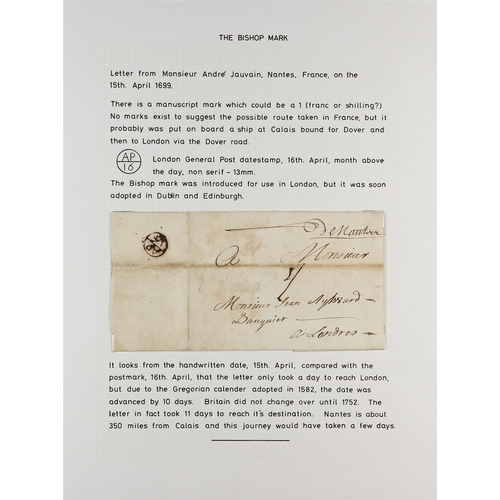 THE BISHOP MARK
Letter from Monsieur André Jauvain, Nantes, France, on the
15th. April 1699.
There is a manuscript mark which could be a 1 (franc or shilling?)
No marks exist to suggest the possible route taken in France, but it
probably was put on board a ship at Calais bound for Dover and
then to London via the Dover road.
AP
16
London General Post datestamp, 16th. April, month above
the day, non serif - 13mm.
The Bishop mark was introduced for use in London, but it was soon
adopted in Dublin and Edinburgh.
de Nantes
A Monsieur
Monsieur Jean
Banquier
a Londres
It looks from the handwritten date, 15th. April, compared with the
postmark, 16th. April, that the letter only took a day to reach London,
but due to the Gregorian calender adopted in 1582, the date was
advanced by 10 days. Britain did not change over until 1752. The
letter in fact took 11 days to reach it's destination. Nantes is about
350 miles from Calais and this journey would have taken a few days.